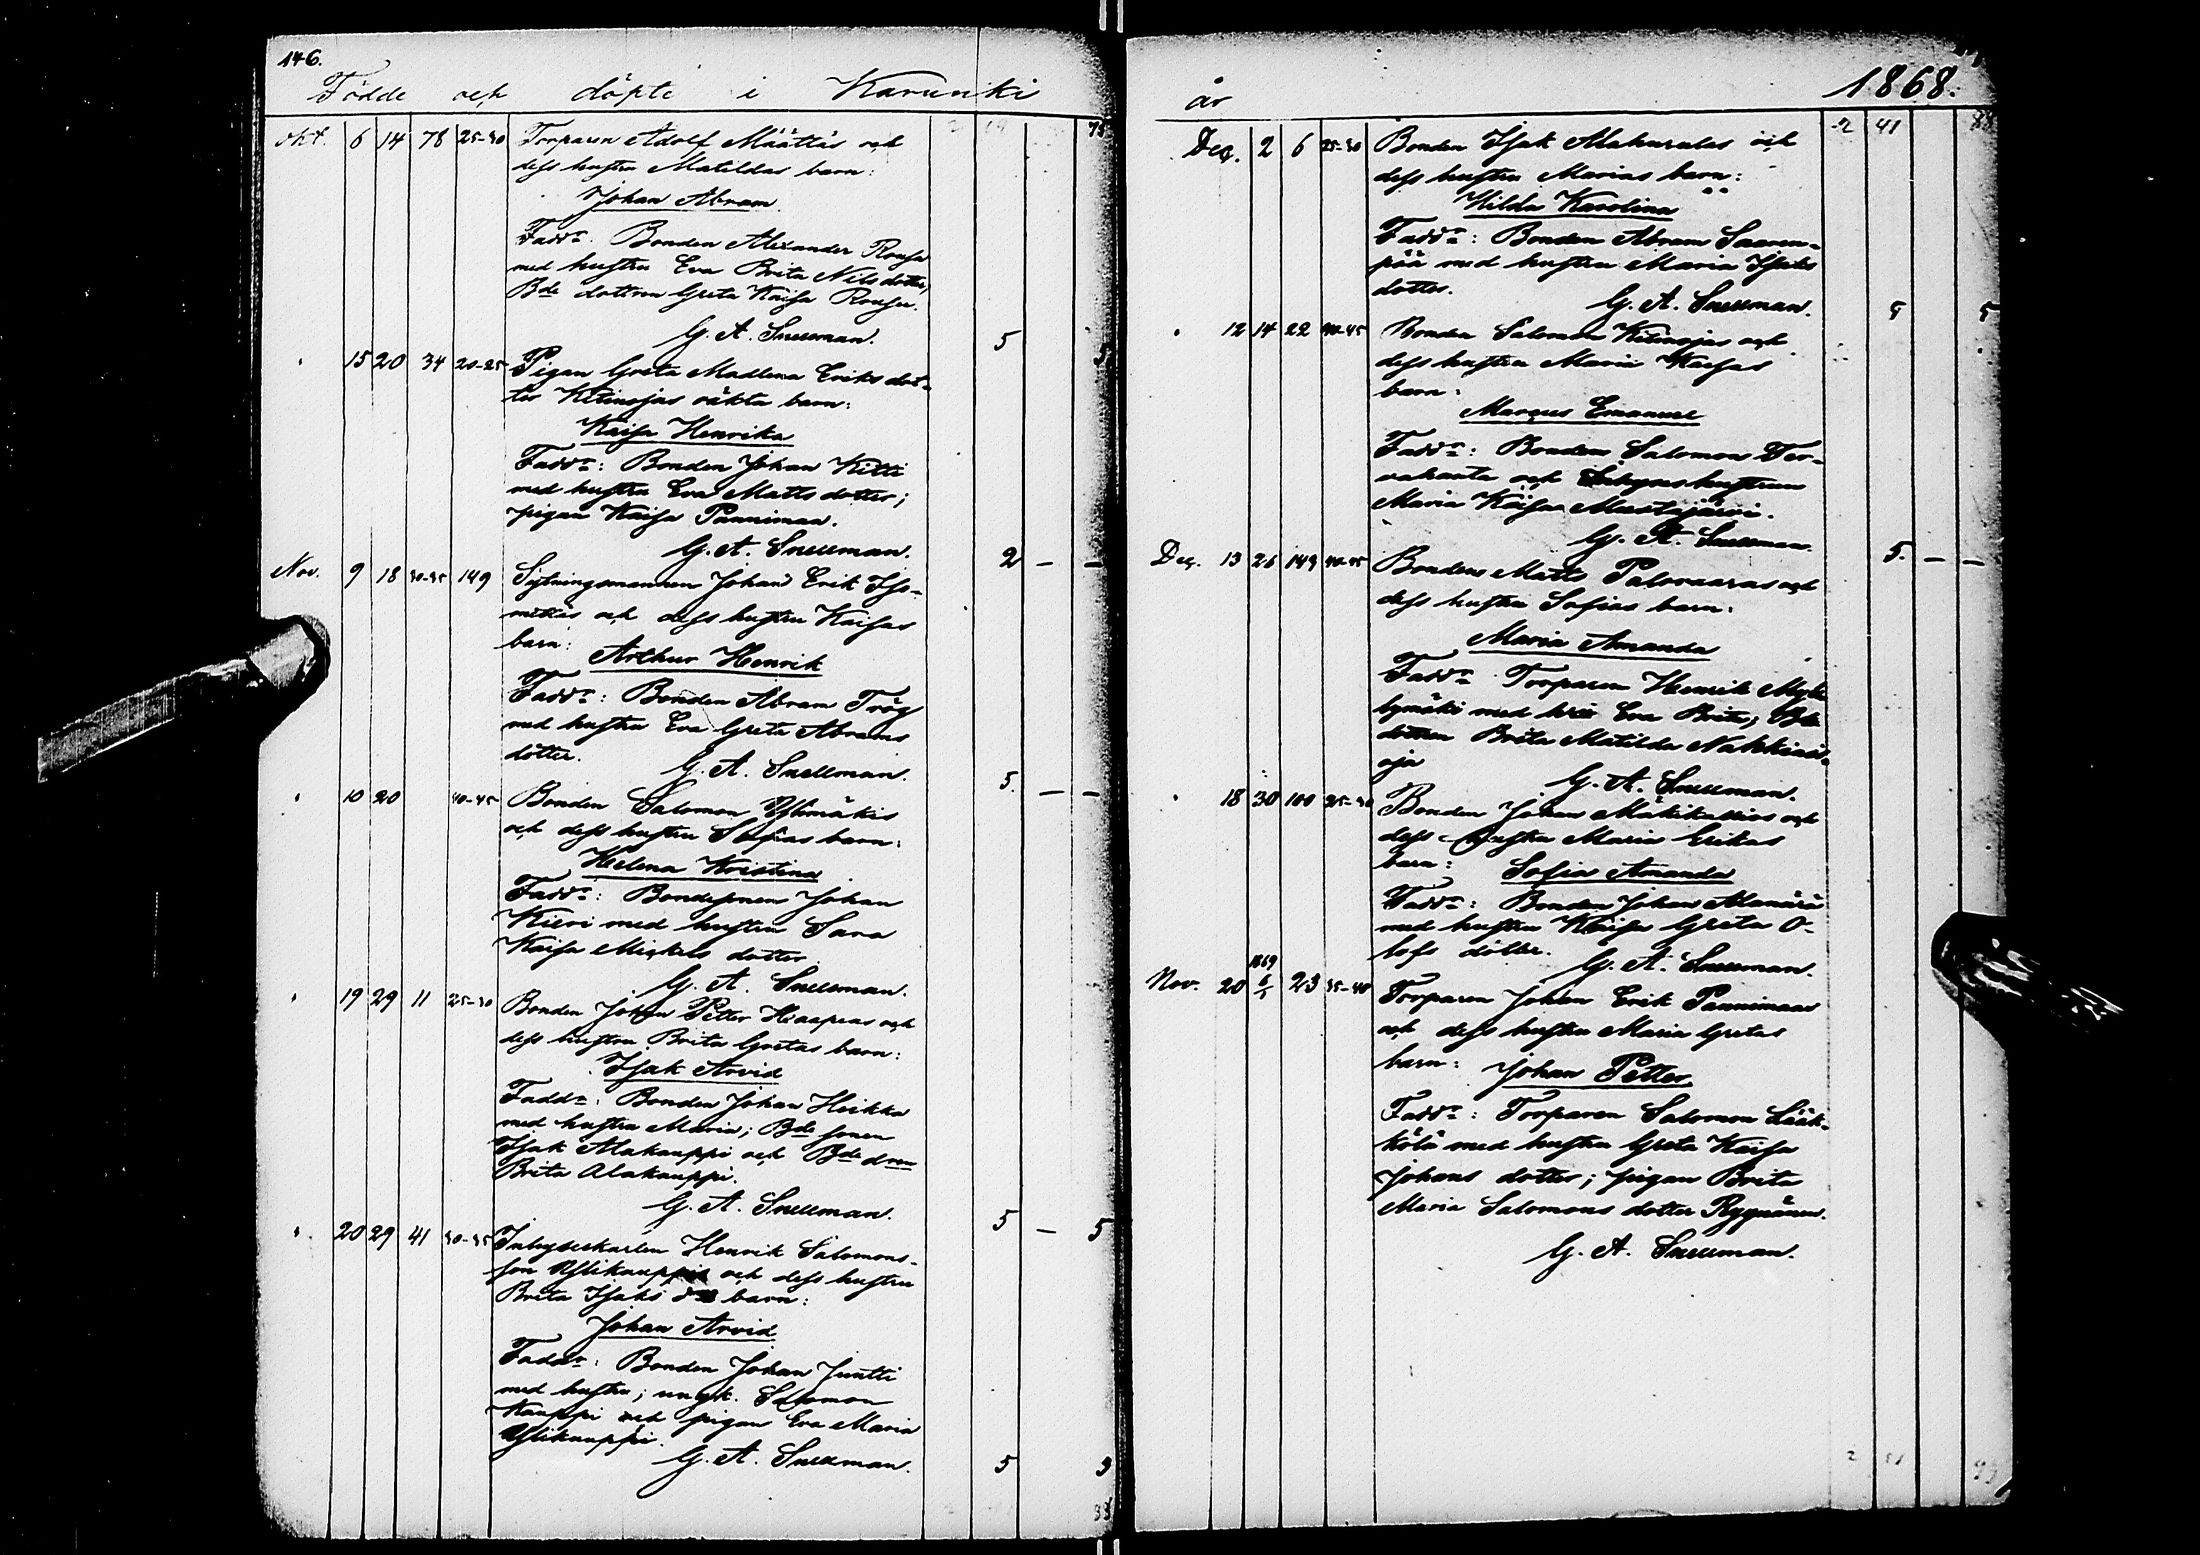 146.
Födde och döpte i Karunki
Okt. 6 14 78 25-30 Torparen Adolf Määttäs och
dess hustru Matildas barn:
Johan Abram
Faddr: Bonden Alexander Rousu
med hustru Eva Brita Nilsdotter,
Bde dottren Greta Kaisa Rousu.
G. A. Snellman. 5 5
" 15 20 34 20-25 Pigan Greta Madlena Eriks dot-
ter Kitinojas oäkta barn:
Kaisa Henrika
Faddr: Bonden Johan Kitti
med hustru Eva Matts dotter;
pigan Kaisa Pannimaa.
G. A. Snellman. 2 — —
Nov. 9 18 30-35 149 Sytningsmannen Johan Erik Iso-
mettäs och dess hustru Kaisas
barn: Arthur Henrik
Faddr: Bonden Abram Trög
med hustru Eva Greta Abrams
dotter.
G. A. Snellman. 5. — —
" 10 20 40-45 Bonden Salomon Ylimäkis
och dess hustru Sofias barn:
Helena Kristina
Faddr: Bondesonen Johan
Kieri med hustru Sara
Kaisa Mickels dotter
G. A. Snellman.
" 19 29 11 25-30 Bonden Johan Petter Hiaapeas och
dess hustru Brita Gretas barn:
Isak Arvid
Faddr: Bonden Johan Heikka
med hustru Maria; Bde sonen
Isak Alakauppi och Bde dren
Brita Alakauppi.
G. A. Snellman. 5 — 5
" 20 29 41 30-35 Inhyseskarlen Henrik Salomons-
son Ylikauppis och dess hustru
Brita Isaks drs barn:
Johan Arvid
Faddr: Bonden Johan Juntti
med hustru; ungk. Salomon
Kauppi och pigan Eva Maria
Ylikauppi.
G. A. Snellman. 5 3
år 1868.
2 41 88
Dec. 2 6 25-30 Bonden Isak Makurulas och
dess hustru Marias barn:
Hilda Karolina
Faddr: Bonden Abram Saaren-
pää med hustru Maria Isaks
dotter.
G. A. Snellman. 5 5
" 12 14 22 40-45 Bonden Salomon Kitinojas och
dess hustru Maria Kaisas
barn:
Marcus Emanuel
Faddr: Bonden Salomon Ter-
vahauta och Inhyseshustrun
Maria Kaisa Mustijärvi.
G. A. Snellman. 5. — —
Dec. 13 26 149 40-45 Bonden Matts Palovaaras och
dess hustru Sofias barn:
Maria Amanda
Faddr: Torparen Henrik Mylly-
bymäki med hru Eva Brita; Bde
dottren Brita Matilda Nakkinis-
oja
G. A. Snellman.
" 18 30 100 25-30 Bonden Johan Mäkikallios och
dess hustru Maria Erikas
barn: Sofia Amanda
Faddr: Bonden Johan Alamäki
med hustru Kaisa Greta O-
lofs dotter.
G. A. Snellman.
1869
Nov. 20 6/1 23 35-40 Torparen Johan Erik Pannimaas
och dess hustru Maria Gretas
barn: Johan Petter
Faddr: Torparen Salomon Lääk-
kölä med hustru Greta Kaisa
Johans dotter; pigan Brita
Maria Salomons dotter Ryynänen.
G. A. Snellman.